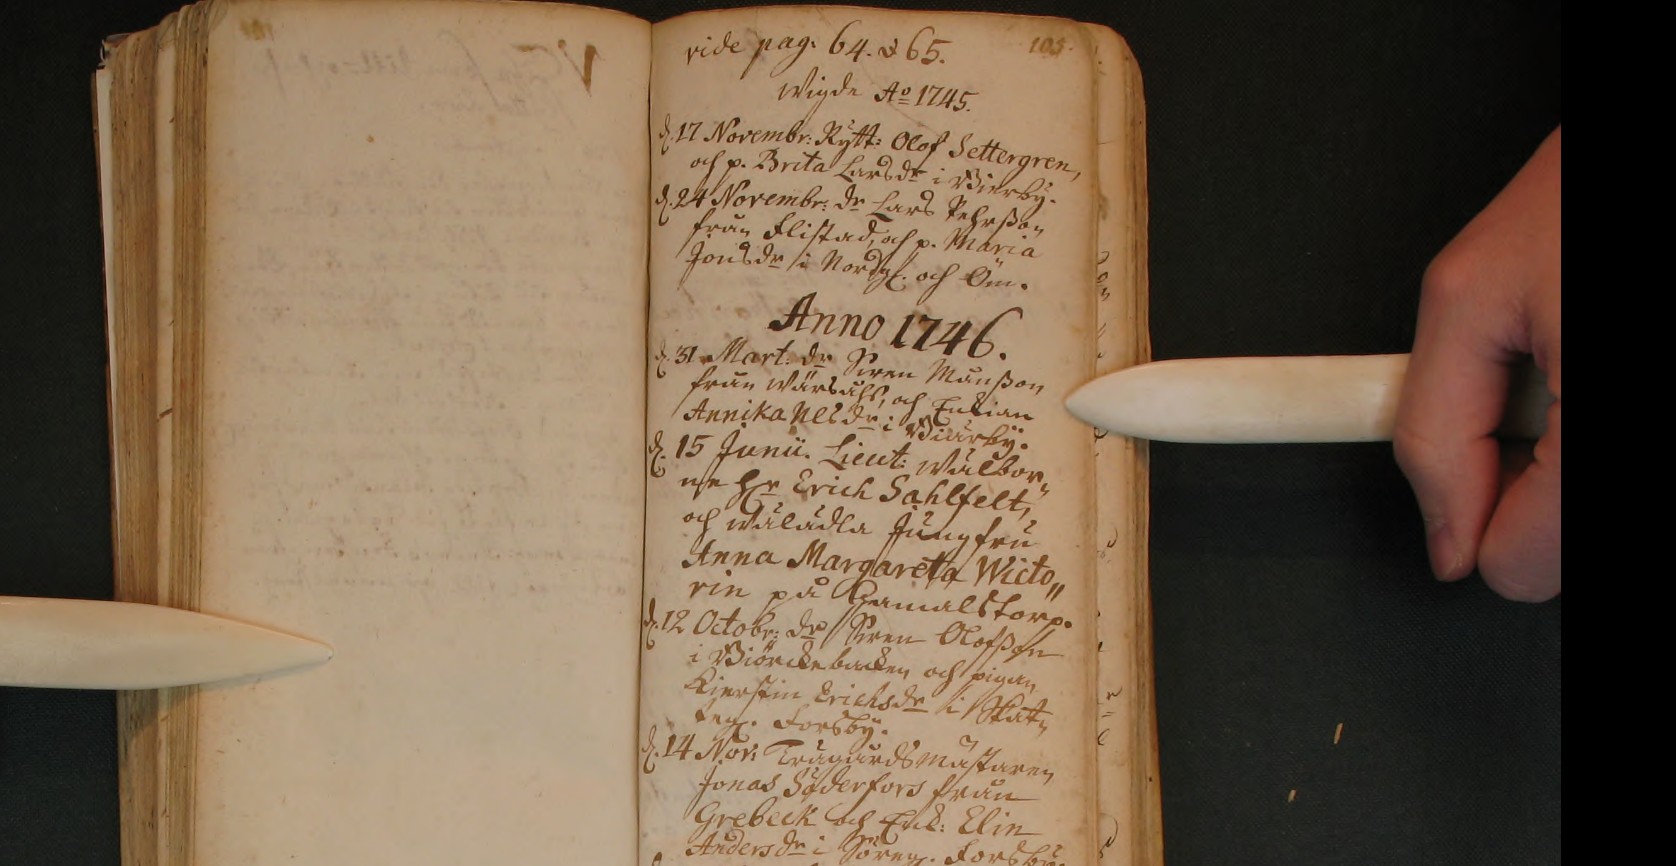 vide pag: 64. & 65.
105.
Wigde Ao 1745.
d. 17 Novembr: Rytt: Olof Settergren,
och p. Brita Larsdr i Bierby.
d. 24 Novembr: dr Lars Pehrsson
från Flistad, och p. Maria
Jonsdr i Nordg. och Öm.
Anno 1746.
d. 31 Mart: dr Swen Månsson
från Wårsåhs, och Enkian
Annika Nelsdr i Biärby.
d. 15 Junii. Lieut: Wälbor„
ne Hr Erich Sahlfelt,
och Wälädla Jungfru
Anna Margareta Wicto„
rin på Gamalstorp.
d. 12 Octobr: dr Swen Olofsson
i Biörckebacken och pigan
Kjerstin Erichsdr i Skat„
teg. Forsby.
d. 14 Nov: Trägårdsmästaren
Jonas Söderfors från
Grebeck och Enk: Elin
Andersdr i Söreg. Forsby.